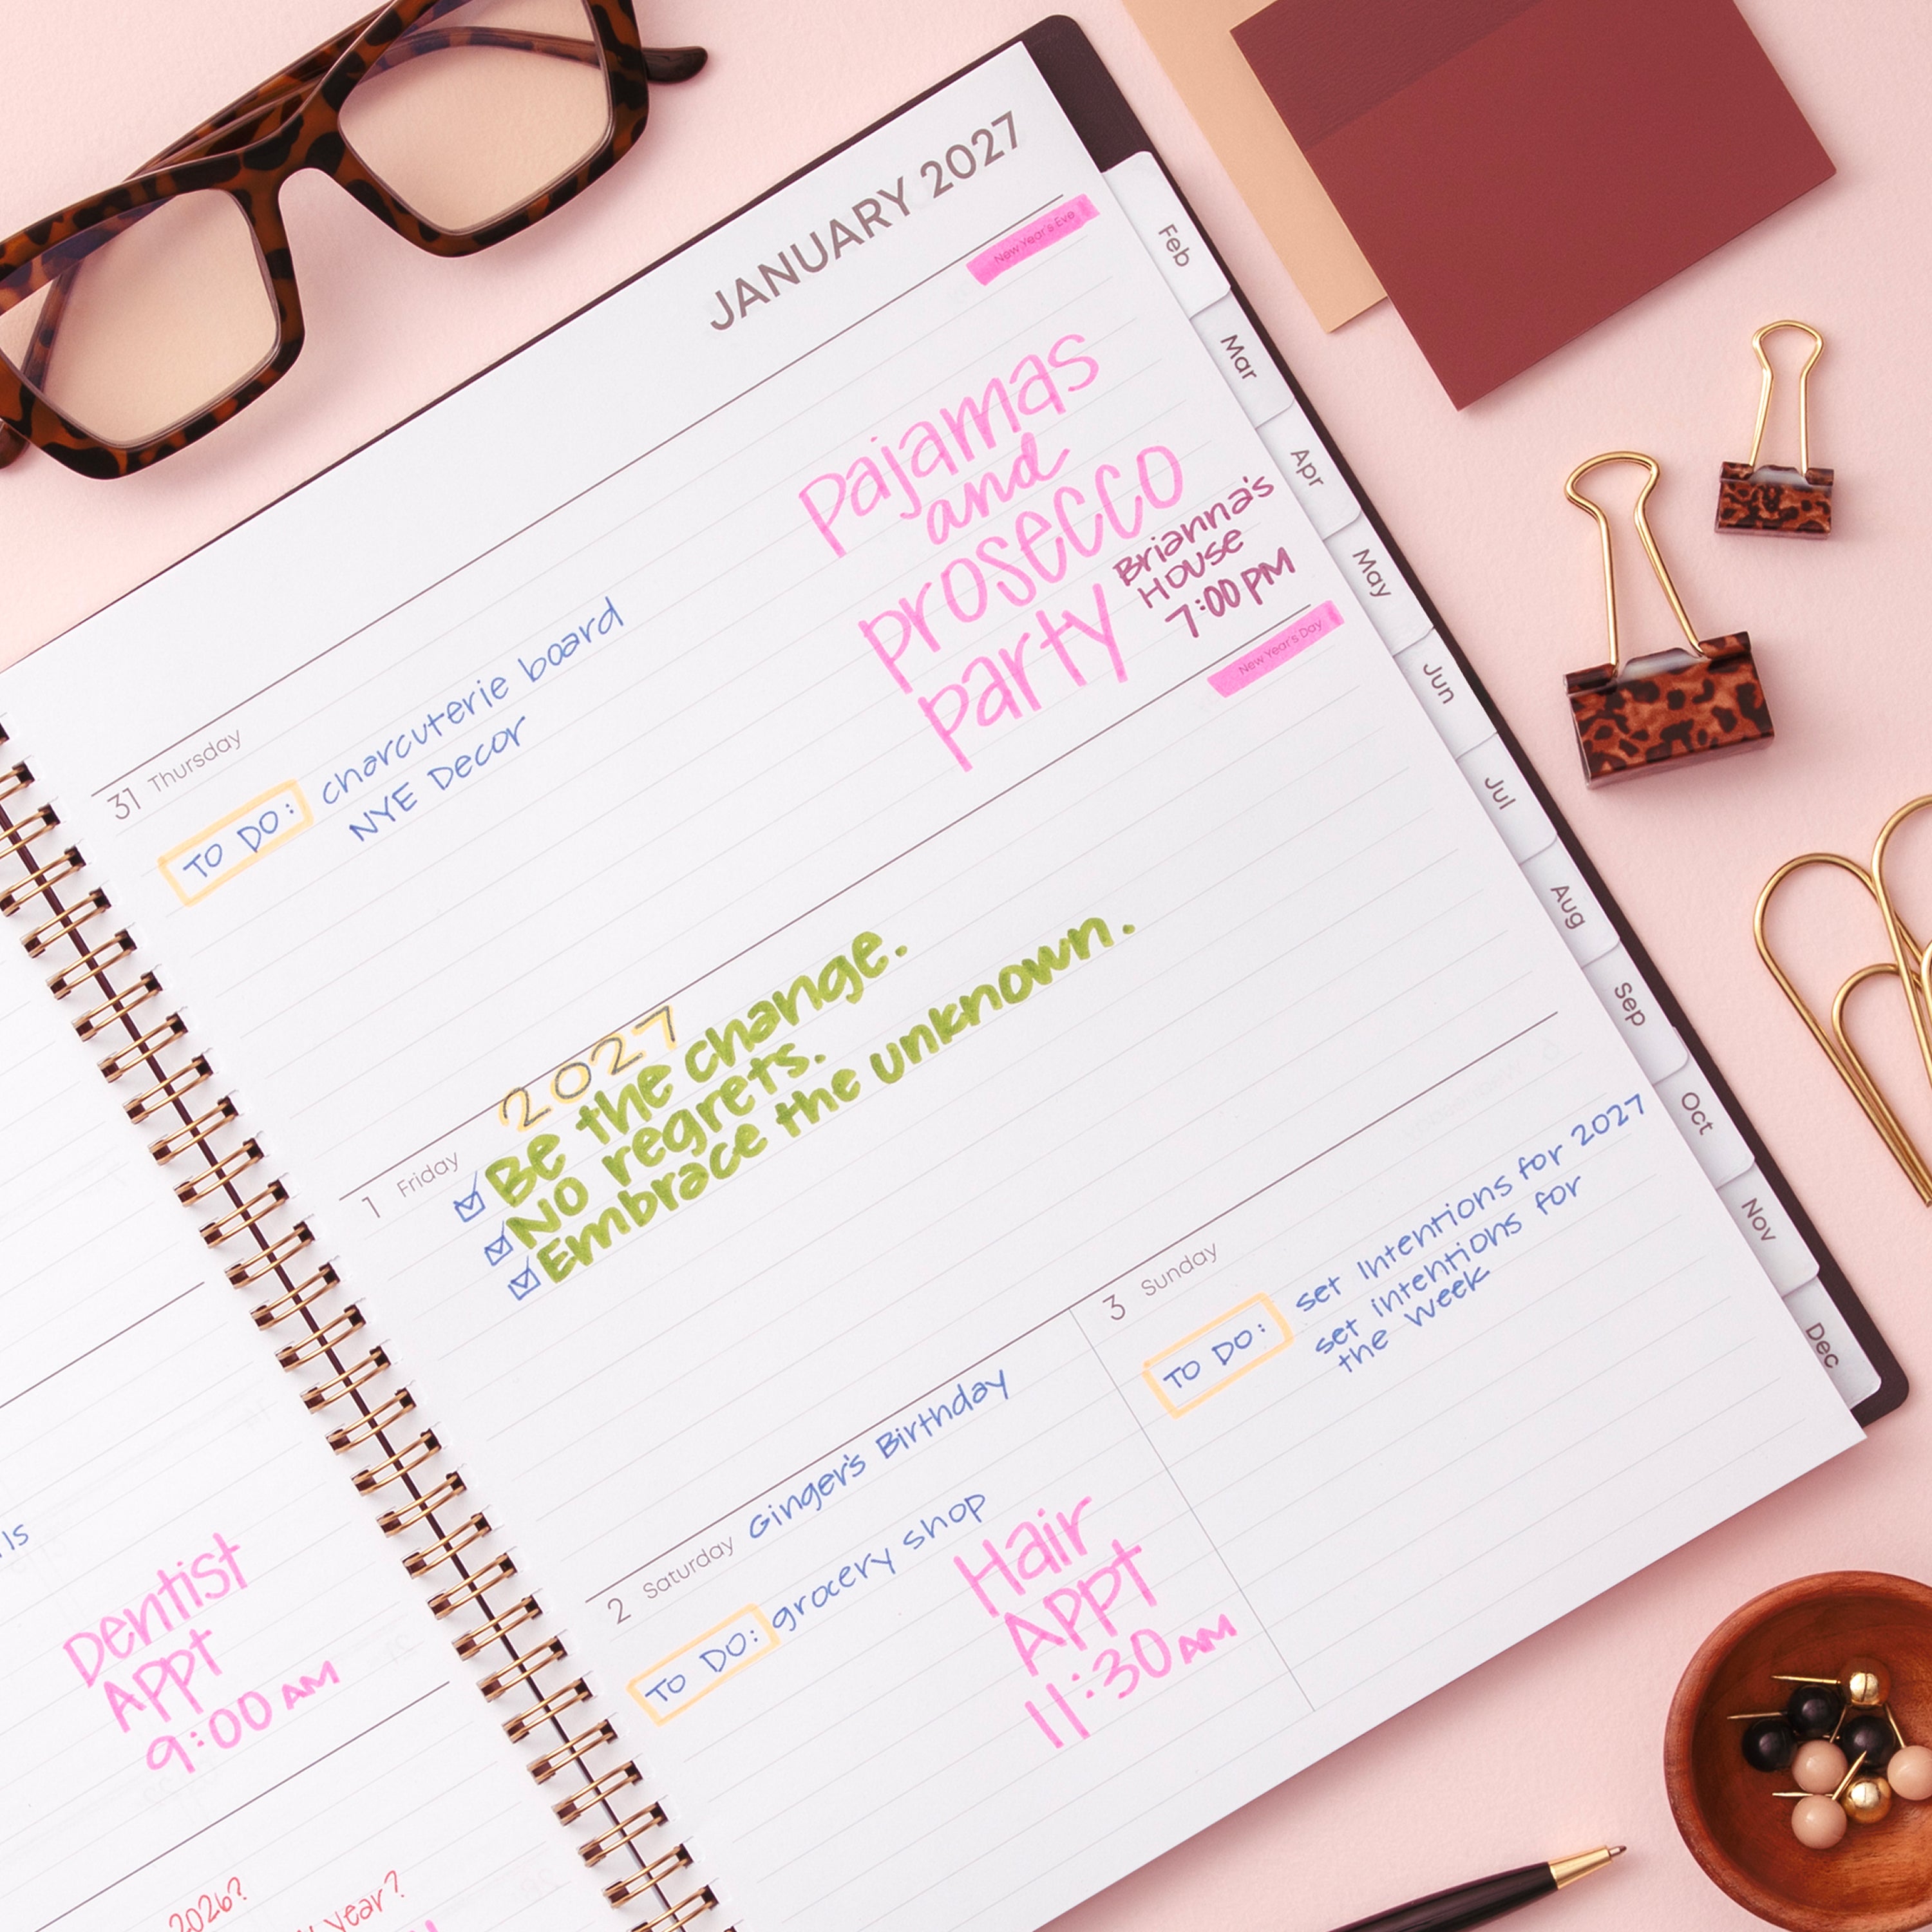 JANUARY 2027
31 Thursday
New Year's Eve
TO DO: charcuterie board
NYE Decor
Pajamas
and
prosecco
party
Brianna's
House
7:00 PM
1 Friday
New Year's Day
2027
Be the change.
No regrets.
Embrace the unknown.
2 Saturday Ginger's Birthday
TO DO: grocery shop
Hair
APPT
11:30 AM
3 Sunday
TO DO: set Intentions for 2027
set intentions for
the week
Feb
Mar
Apr
May
Jun
Jul
Aug
Sep
Oct
Nov
Dec
Dentist
APPT
9:00 AM
2026?
year?